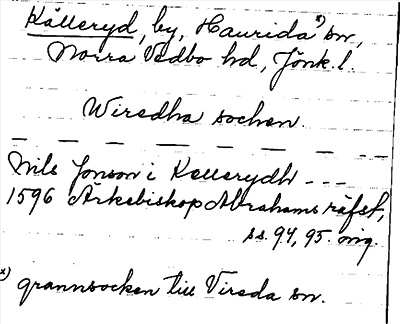 Källeryd, by, Haurida x) sn,
Norra Vedbo hd, Jönk. l.
Wiredha sochen.
Nils Jonson i Kellerydh - - -
1596 Ärkebiskop Abrahams räfst,
ss. 94, 95. orig.
x) grannsocken till Vireda sn.